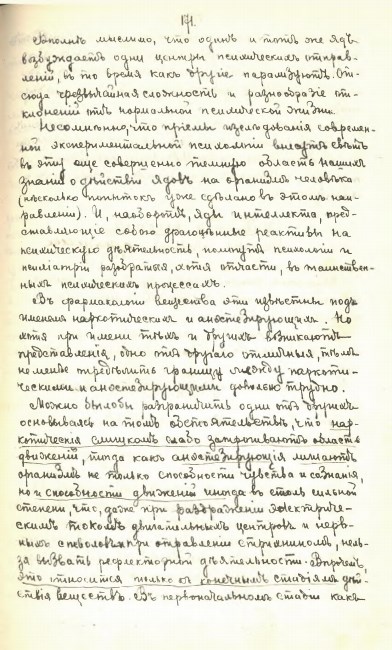 171.
Вполнѣ мыслимо, что одинъ и тотъ же ядъ
возбуждаетъ одни центры психическихъ отправ-
леній, въ то время какъ другіе парализуютъ. От-
сюда чрезвычайная сложность и разнообразіе от-
клоненій отъ нормальной психической жизни.
Несомнѣнно, что пріемы изслѣдованія современ-
ной экспериментальной психологіи внесутъ свѣтъ
въ эту еще совершенно темную область нашихъ
знаній о дѣйствіи ядовъ на организмъ человѣка
(нѣсколько попытокъ уже сдѣлано въ этомъ нап-
равленіи). И, наоборотъ, яды интеллекта, пред-
ставляющіе собою драгоцѣнные реактивы на
психическую дѣятельность, помогутъ психологіи и
психіатріи разобраться, хотя отчасти, въ таинствен-
ныхъ психическихъ процессахъ.
Въ фармакологіи вещества эти извѣстны подъ
именемъ наркотическихъ и анэстезирующихъ. Но
хотя при имени тѣхъ и другихъ возникаютъ
представленія, одно отъ другого отличныя, тѣмъ
не менѣе опредѣлить границу между наркоти-
ческими и анэстезирующими довольно трудно.
Можно было бы разграничить одни отъ другихъ
основываясь на томъ обстоятельствѣ, что нар-
котическія слишкомъ слабо затрогиваютъ область
движеній тогда какъ анэстезирующія лишаютъ
организмъ не только способности чувства и сознанія,
но и способности движеній иногда въ столь сильной
степени, что, даже при раздраженіи электриче-
скимъ токомъ двигательныхъ центровъ и нерв-
ныхъ стволовъ и при отравленіи стрихниномъ, нель-
зя вызвать рефлекторной дѣятельности. Впрочемъ,
это относится только къ конечнымъ стадіямъ дѣй-
ствія веществъ. Въ первоначальномъ стадіи какъ